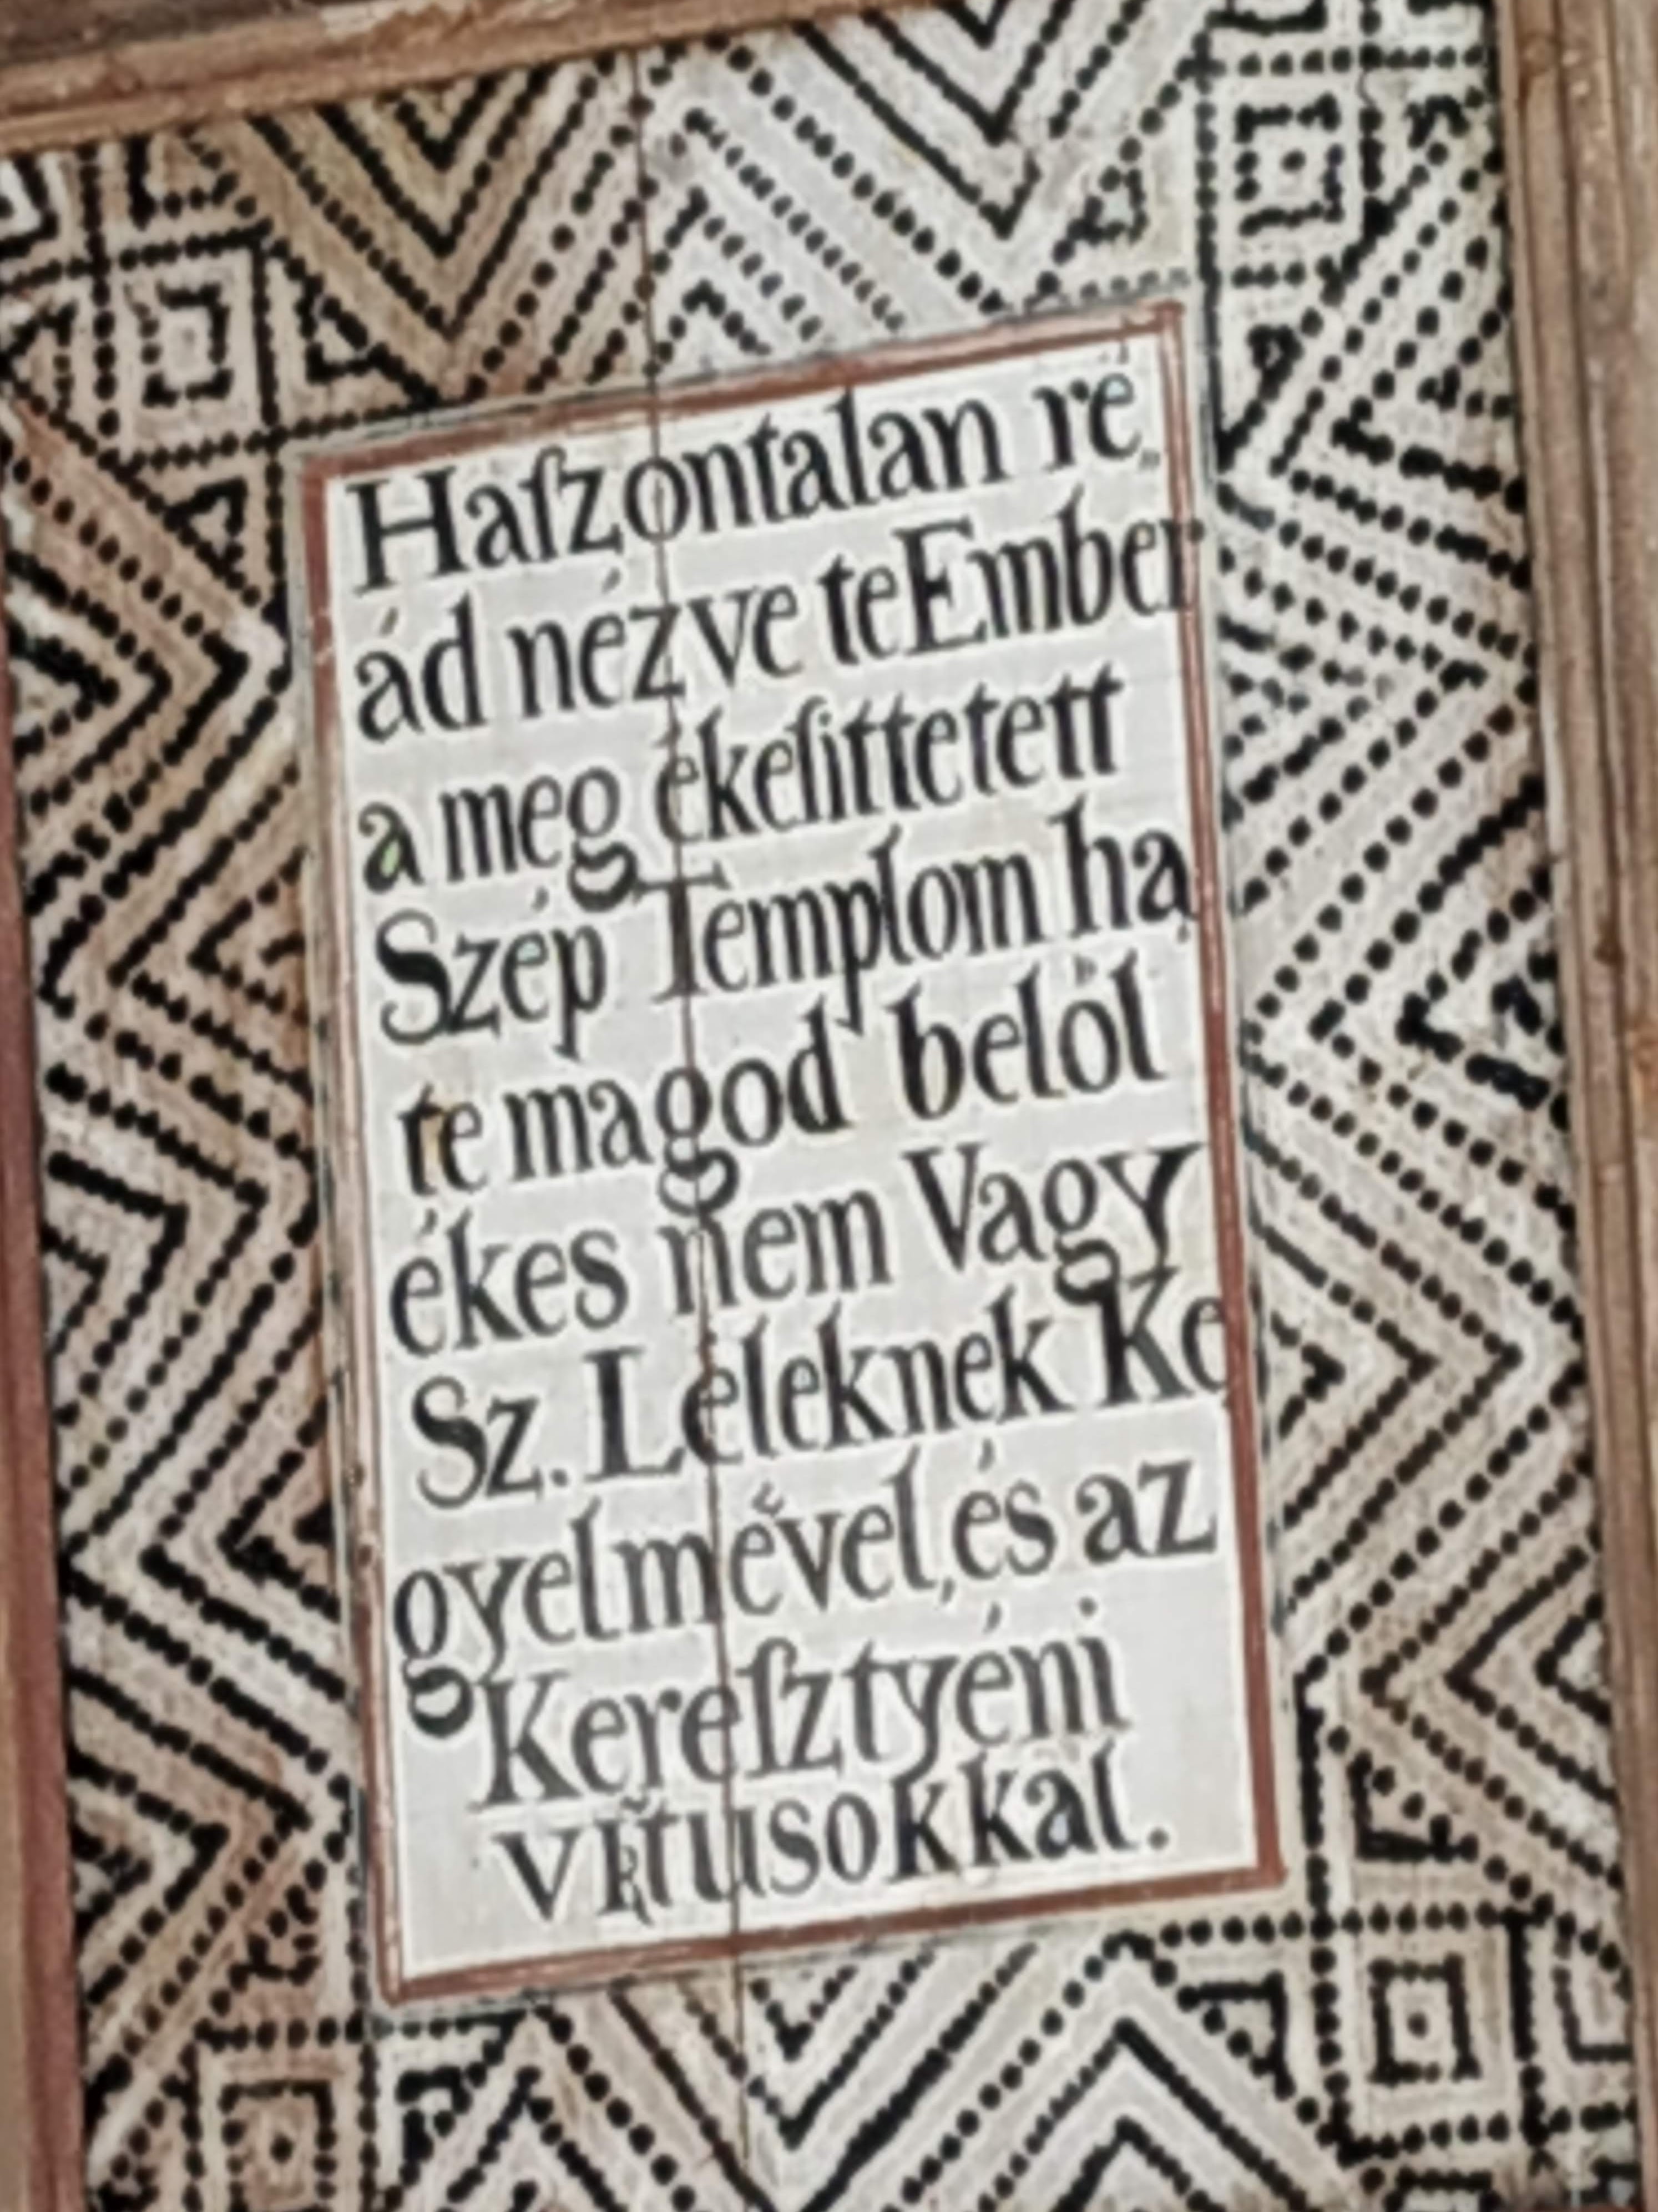 Haſzontalan ré„
ád nézve te Ember
a meg ékeſittetett
Szép Templom ha
te magod belől
ékes nem Vagy
Sz. Léleknek Ke
gyelmével, és az
Kereſztyéni
virtusokkal.